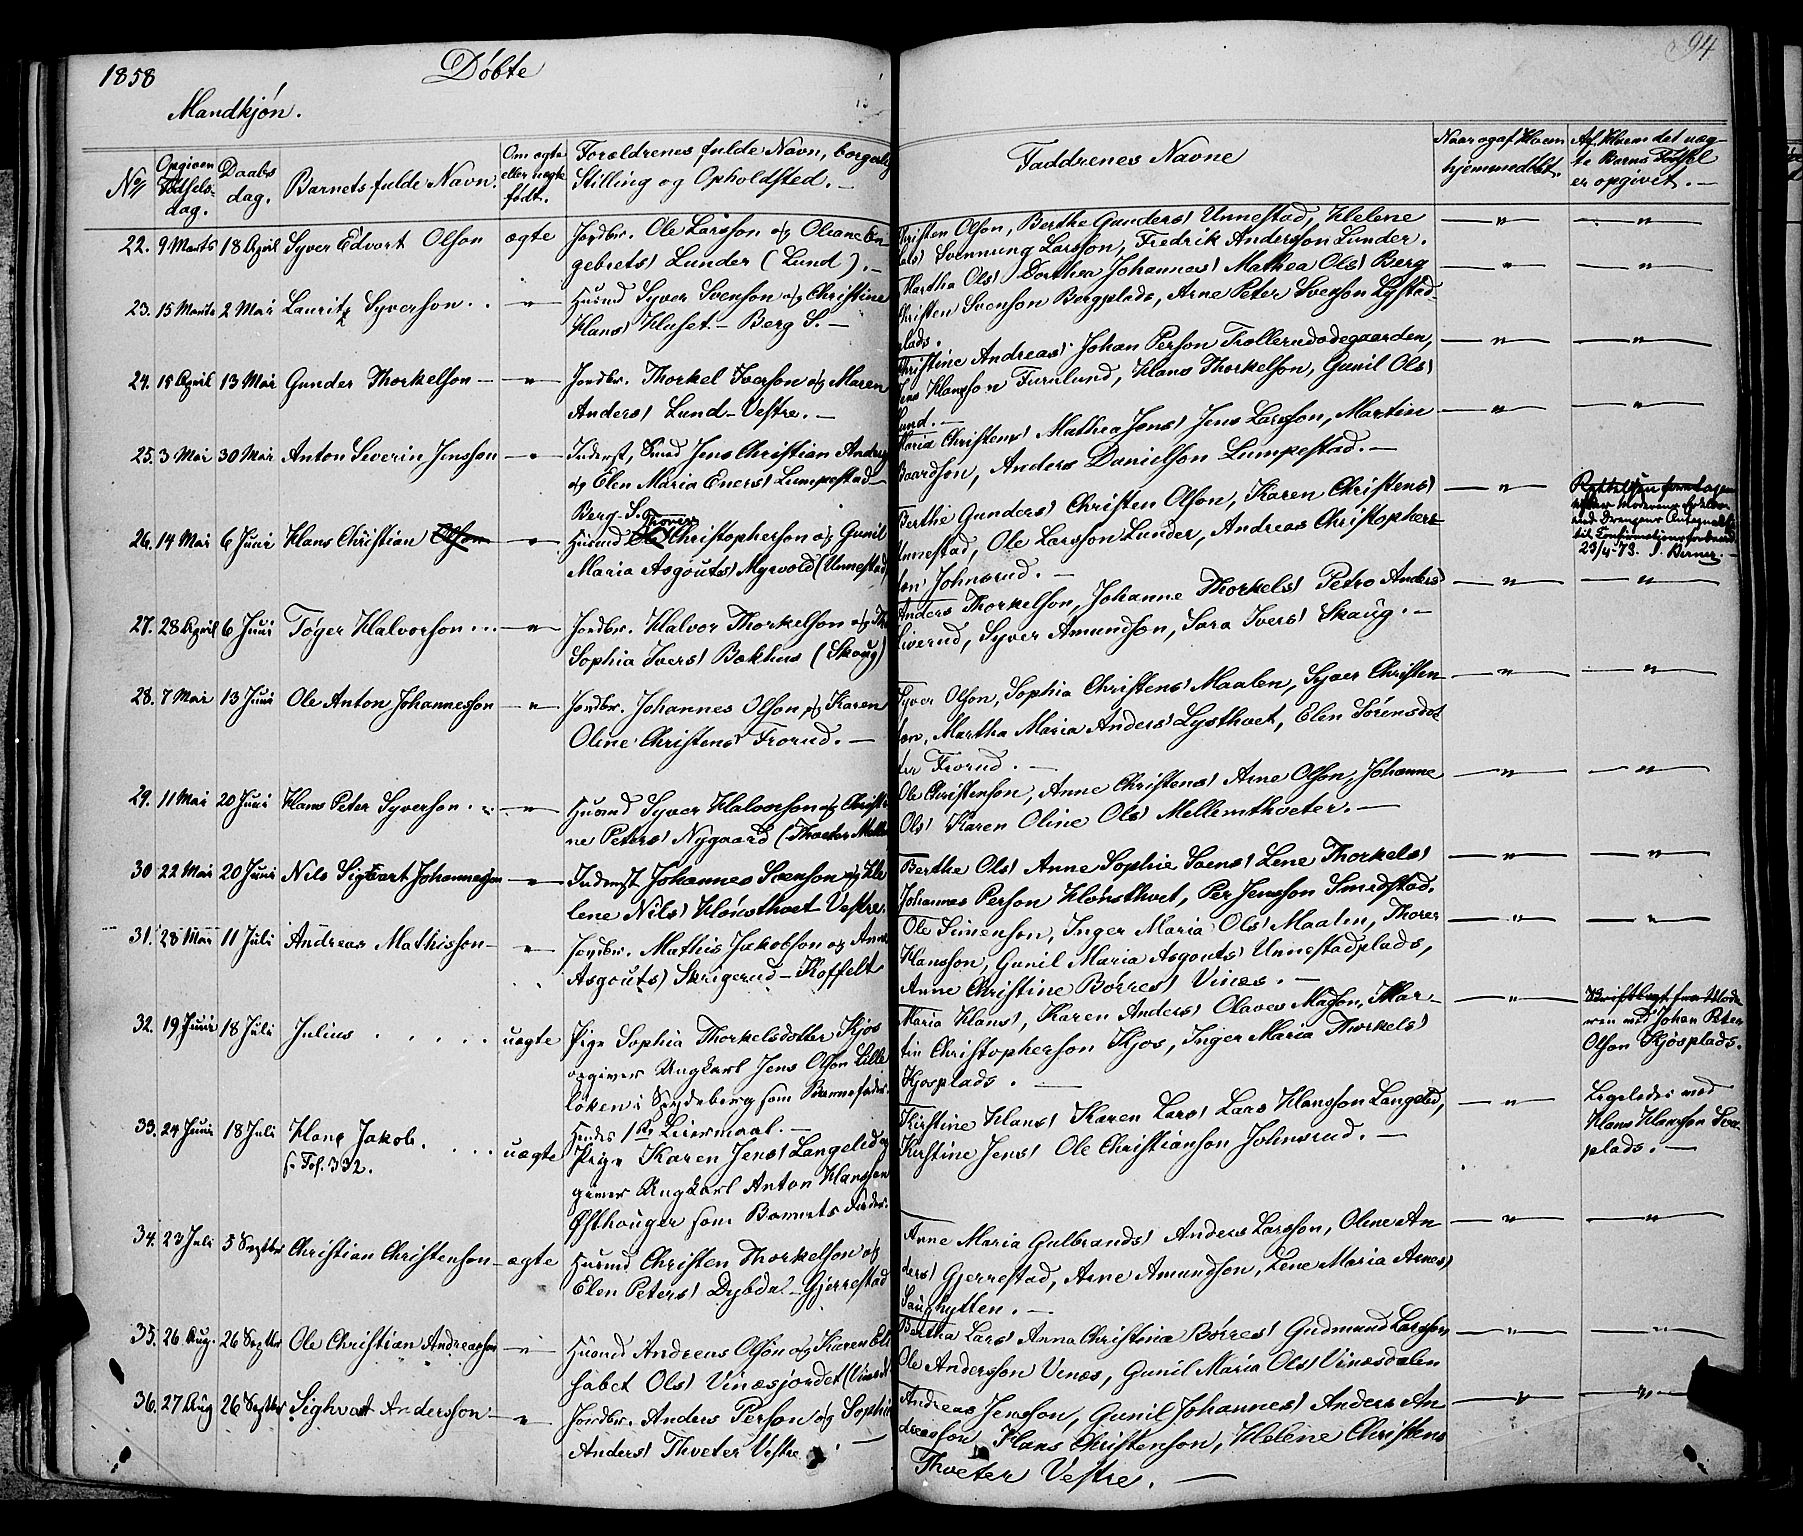 1858
Døbte
94
Mandkjøn.
No/
Opgiven Fødsels-dag.
Daabs dag.
Barnets fulde Navn.
Om ægte eller uægte født.
Forældrenes fulde Navn, borgerlig Stilling og Opholdsted. —
Faddrenes Navne
Naar og af Hvem hjemmedøbt.
Af Hvem det uæg-te Barns Fødsel er opgivet. —
22. 9 Marts 18 April Syver Edvart Olson ægte Jordbr. Ole Larsson og Oliane En-
gebrets) Lunder (Lund). —
Christen Olson, Berthe Gunders) Unnestad, Helene
Svennung Larsson, Fredrik Andersson Lunder.
23. 15 Marts 2 Mai Lauritz Syverson . . — " — Husmd Syver Svenson og Christine
Hans) Huset. — Berg S. —
Martha Ols) Dorthea Johannes) Mathea Ols) Berg
Christen Svenson Bergplads, Arne Peter Svenson Lystad-
plads.
24. 15 April 13 Mai Gunder Thorkelson — — " — Jordbr. Thorkel Iverson og Maren
Anders) Lund – Vestre. —
Christine Andreas) Johan Person Trollerudødegaarden,
Jens Hansson Furulund, Hans Thorkelson, Gunil Ols)
Lund. —
25. 3 Mai 30 Mai Anton Severin Jensson — " — Inderst, Smed Jens Christian Anders
og Elen Maria Eners) Lumpestad —
Berg S.
Maria Christens) Mathea Jens) Jens Larsson, Martin
Baardson, Anders Danielson Lumpestad. —
26. 14 Mai 6 Juni Hans Christian Olson — " — Husmd Ole Thorer Christopherson og Gunil
Maria Asgouts) Myrvold (Unnestad)
Berthe Gunders) Christen Olson, Karen Christens)
Unnestad, Ole Larsson Lunder, Andreas Christophers-
son Johnsrud. —
23/4-73. J. Berner. —
27. 28 April 6 Juni Tøger Halvorson . . . — " — Jordbr. Halvor Thorkelson og
Sophia Ivers) Bakhus (Skaug)
Anders Thorkelson, Johanne Thorkels) Petro Anders)
Liverud, Syver Amundson, Sara Ivers) Skaug. —
28. 7 Mai 13 Juni Ole Anton Johannesson — " — Jordbr. Johannes Olson og Karen
Oline Christens) Frorud. —
Syver Olson, Sophia Christens) Maalen, Syver Christen-
son, Martha Maria Anders) Lysthvet, Elen Sørensdot
ter Frorud. —
29. 11 Mai 20 Juni Hans Peter Syverson . . — " — Husmd Syver Halvorson og Christi-
ne Peters) Nygaard (Thveter Mellem
Ole Christenson, Anne Christens) Arne Olson, Johanne
Ols) Karen Oline Ols) Mellemthveter. —
30 22 Mai 20 Juni Nils Sigvart Johannesson — " — Inderst Johannes Svenson og He
lene Nils) Hønsthvet Vestre.
Berthe Ols) Anne Sophie Svens) Lene Thorkels)
Johannes Person Hønsthvet, Per Jensson Smedstad.
31. 28 Mai 11 Juli Andreas Mathisson — — " — Jordbr. Mathis Jakobson og Anne
Asgouts) Skrigerud – Koffelt
Ole Simenson, Inger Maria Ols) Maalen, Thorer
Hansson, Gunil Maria Asgouts) Unnestadplads,
Anne Christine Børres) Vines. —
32. 19 Juni 18 Juli Julius . . . . . uægte Pige Sophia Thorkelsdotter Kjos
opgiver Ungkarl Jens Olson Lille
løken i Spydeberg som Barnefader.
Hendes 1ste Leiermaal. —
Maria Hans), Karen Anders) Olaves Magson, Mar-
tin Christopherson Kjos, Inger Maria Thorkels)
Kjosplads. —
Skriftlagt for Mode-
ren ved Johan Peter
Olson Kjosplads.
33. 24 Juni 18 Juli Hans Jakob. . . . uægte Pige Karen Jens) Langelid op
s. Fol. 332.
giver Ungkarl Anton Hansson
Østhouger som Barnets Fader.
Kirstine Hans) Karen Lars) Lars Hansson Langelid,
Kirstine Jens) Ole Christianson Johnsrud. —
Ligeledes ved
Hans Hansson
plads. —
34. 23 Juli 5 Septbr Christian Christenson — ægte Husmd Christen Thorkelson og
Elen Peters) Dybdal – Gjerrestad
Anne Maria Gulbrands) Anders Larsson, Oline An-
ders) Gjerrestad, Arne Amundson, Lene Maria Arnes)
Saughytten. —
35. 26 Aug. 26 Septbr Ole Christian Andreasson — " — Husmd Andreas Olson og Karen Eli
sabet Ols) Vinesjordet (Vines)
Bertha Lars) Anna Christina Børres) Gudmund Larsson
Ole Andersson Vines, Gunil Maria Ols) Vinesdalen
36. 27 Aug 26 Septbr Sighvart Andersson — " — Jordbr. Anders Person og Sophia
Anders) Thveter Vestre. —
Andreas Jensson, Gunil Johannes) Anders An-
dreasson, Hans Christenson, Helene Christens
Thveter Vestre. —